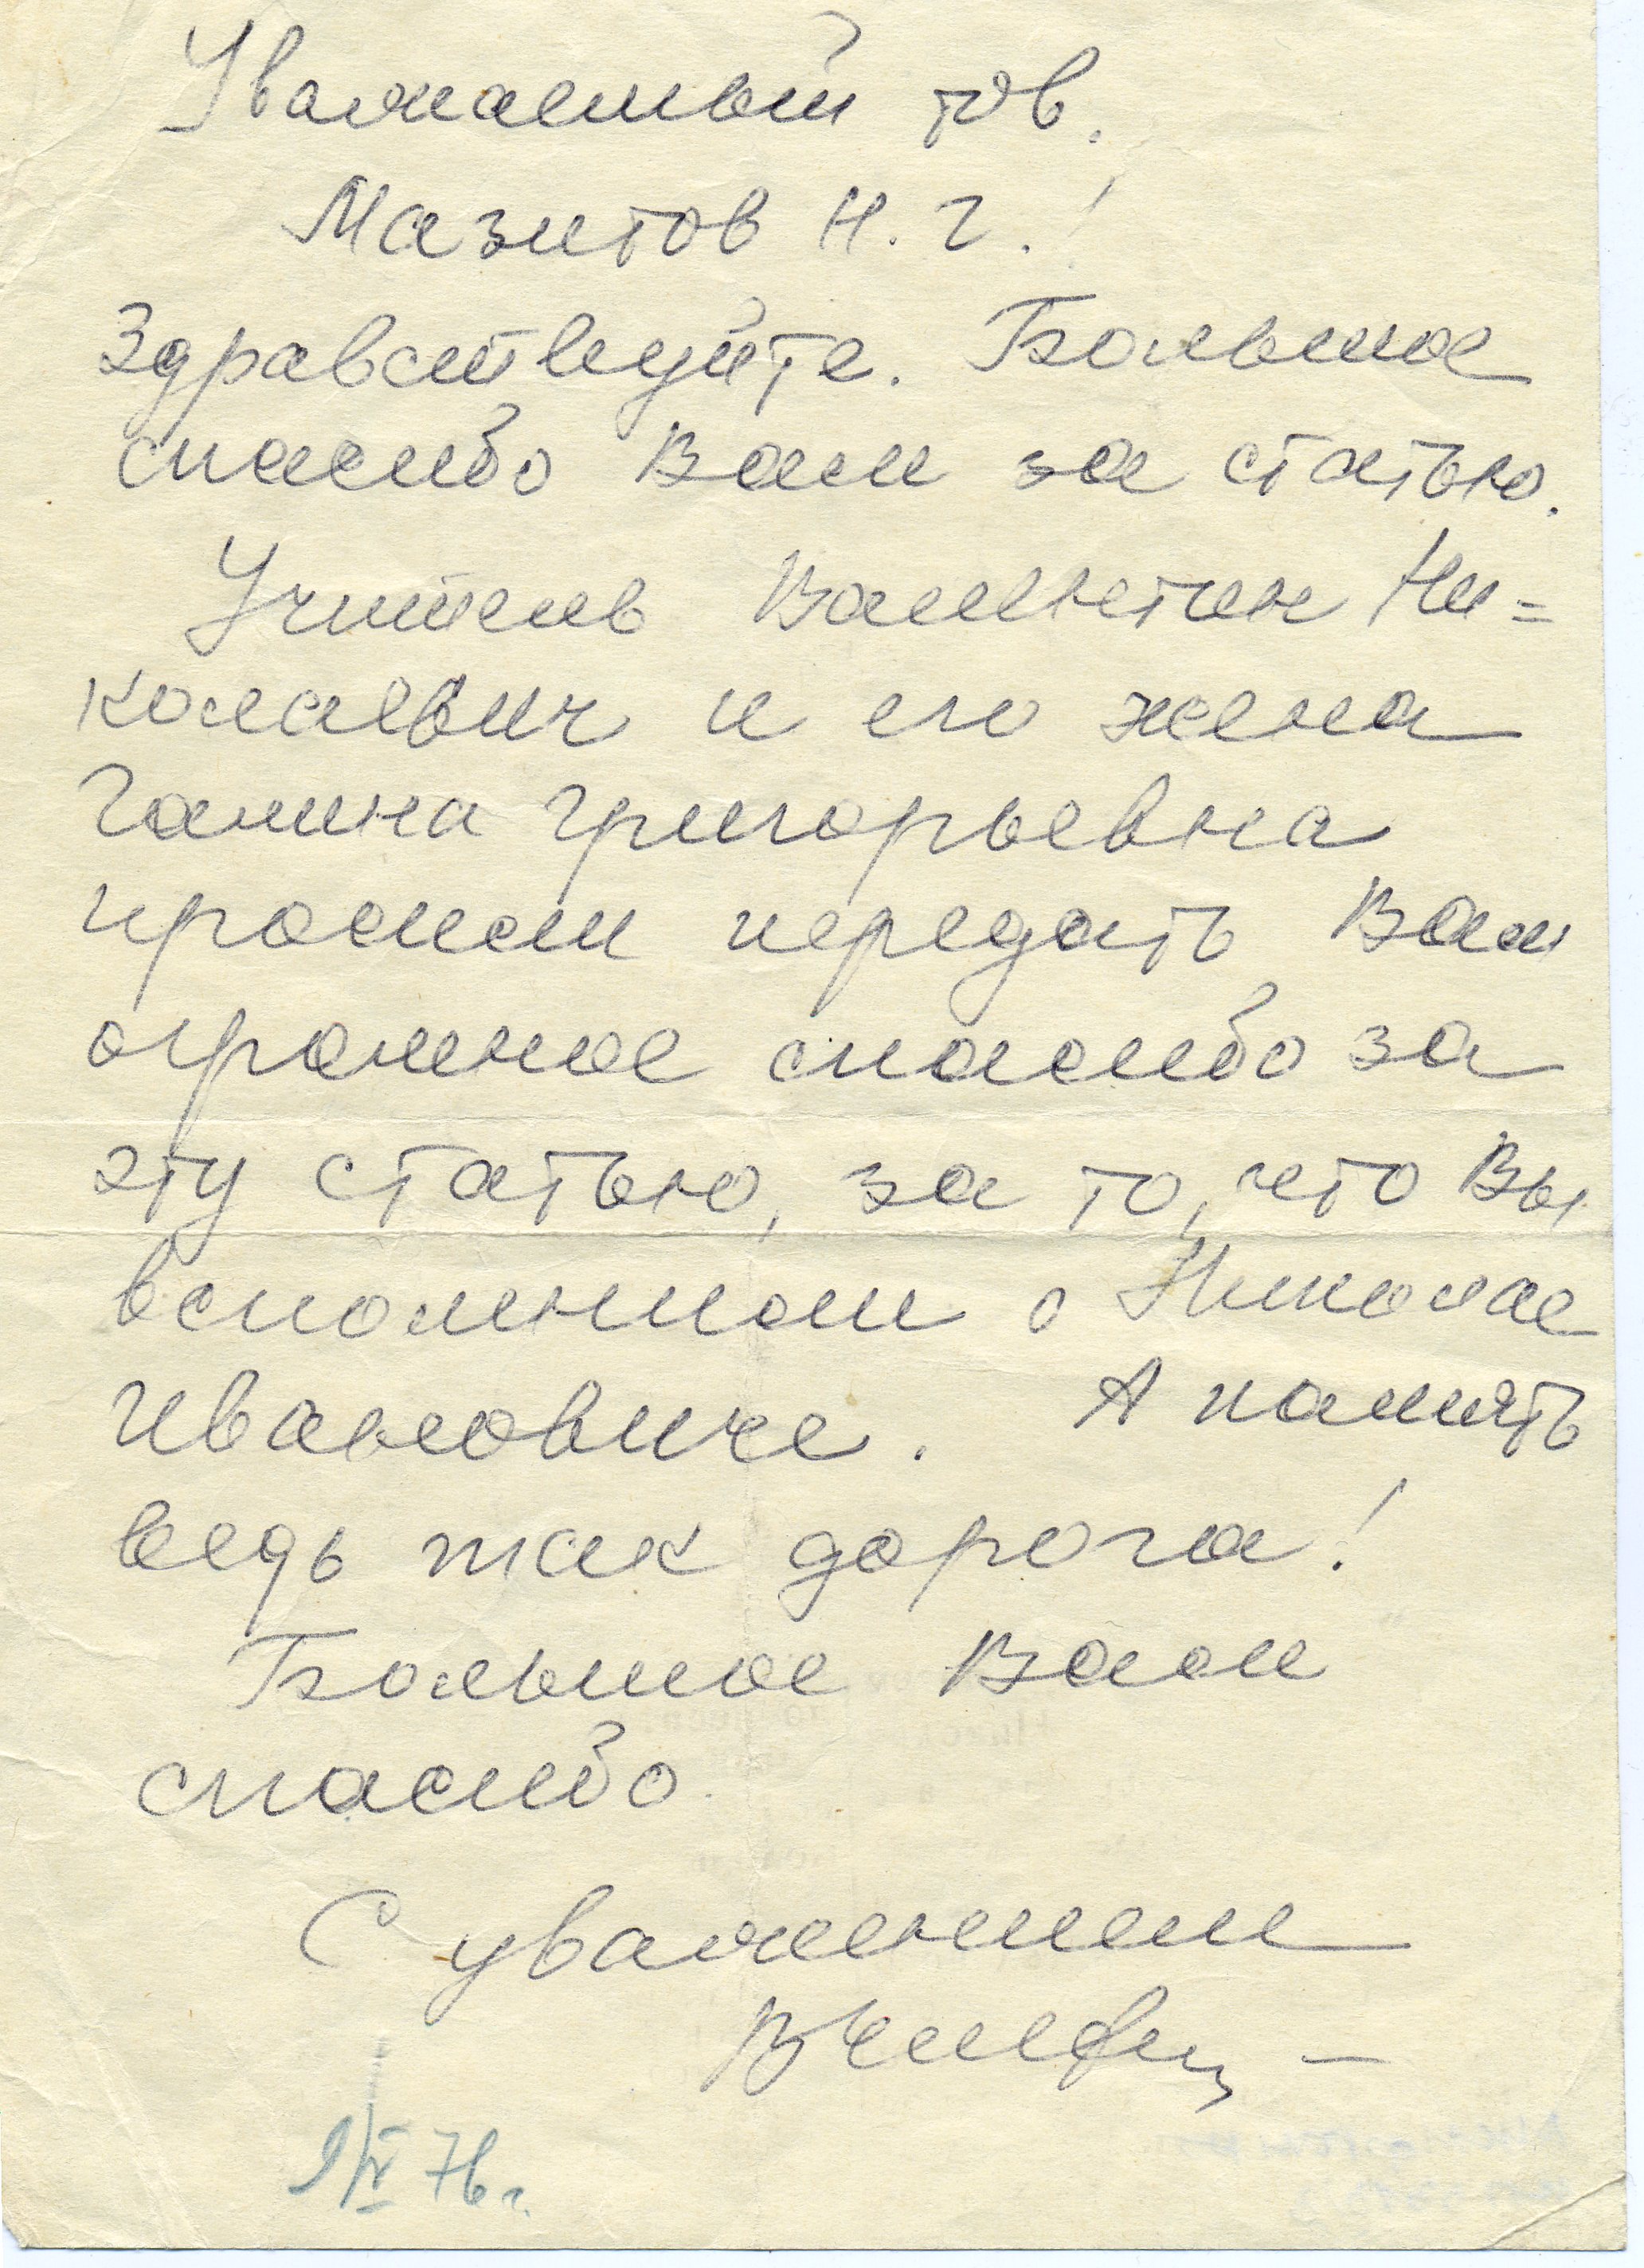 Уважаемый тов.
Мазитов Н. Г.!
Здравствуйте. Большое
спасибо Вам за статью.
Учитель Валентин Ни=
колаевич и его жена
Галина Григорьевна
просили передать Вам
огромное спасибо за
эту статью, за то, что Вы
вспомнили о Николае
Ивановиче. А память
ведь так дорога!
Большое Вам
спасибо.
С уважением
76 г.